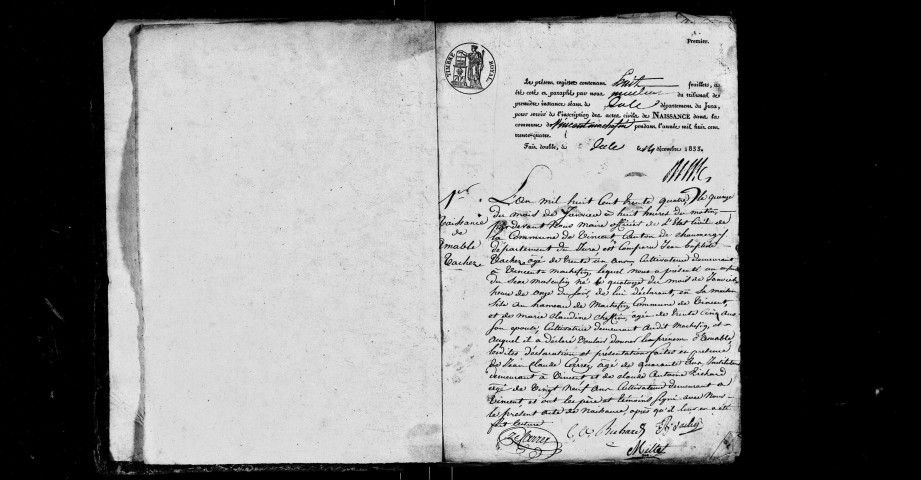 Premier.
TIMBRE ROYAL
Les présens registres contenant huit feuillets, a
été cotés et paraphés par nous du tribunal de
première instance séant de Dole département du Jura,
pour servir de l'inscription des actes civils de NAISSANCE dans la
commune de Vincent pendant l'année mil huit cent
trente-quatre.
Fait double, à Dole le 14 décembre 1833.
1er
Naissance
de
Amable
Vacher
L'an mil huit cent trente quatre, le quinze
du mois de Janvier à huit heures du matin,
Pardevant Nous Maire officier de l'Etat Civil de
la Commune de Vincent Canton de Chaumergy
département du Jura est comparu Jean baptiste
Vacher âgé de trente un ans, Cultivateur demeurant
à Vincent lequel nous a présenté un enfant
du Sexe Masculin né le quatorze du mois de Janvier
heure de onze du soir, de lui déclarant, en sa maison
sise au hameau de Commune de Vincent,
et de marie claudine âgée de trente cinq ans
son épouse, Cultivatrice demeurant audit et
auquel il a déclaré vouloir donner le prénom d'Amable
lesdites déclaration et présentation faites en présence
de Jean Claude âgé de quarante ans, Instituteur
demeurant à Vincent et de claude Antoine Richard
âgé de Vingt Neuf ans Cultivateur demeurant à
Vincent, et ont les père et témoins signé avec Nous
le présent acte de naissance, après qu'il leur en a été
fait lecture
C A Richard
Millet